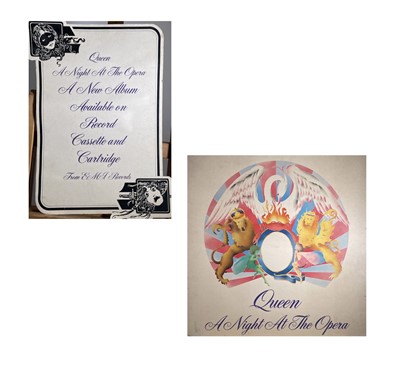 Queen
A Night At The Opera
A New Album
Available on
Record
Cassette and
Cartridge
From EMI Records
Queen
A Night At The Opera